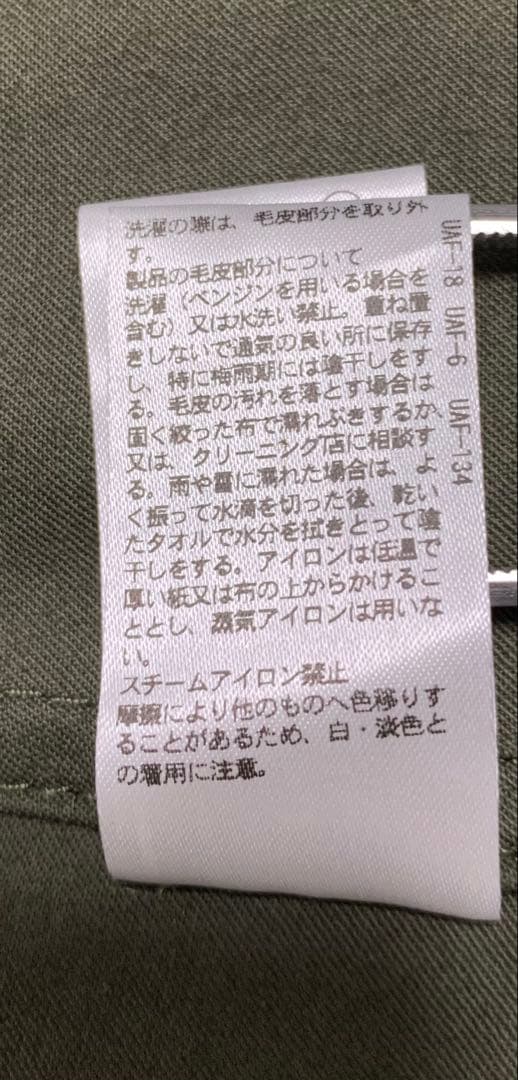 洗濯の際は、毛皮部分を取り外
す。
製品の毛皮部分について
洗濯（ベンジンを用いる場合を
含む）又は水洗い禁止。重ね置
きしないで通気の良い所に保存
し、特に梅雨期には陰干しをす
る。毛皮の汚れを落とす場合は
固く絞った布で濡れぶきするか、
又は、クリーニング店に相談す
る。雨や雪に濡れた場合は、よ
く振って水滴を切った後、乾い
たタオルで水分を拭きとって陰
干しをする。アイロンは低温で
厚い紙又は布の上からかけるこ
ととし、蒸気アイロンは用いな
い。
スチームアイロン禁止
摩擦により他のものへ色移りす
ることがあるため、白・淡色と
の着用に注意。
UAF-18 UAF-6 UAF-134